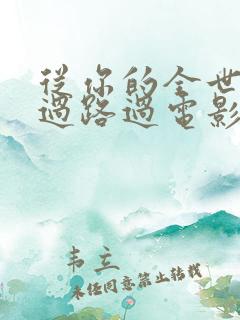 從你的全世
過路過電影
韦立
未经同意禁止转载